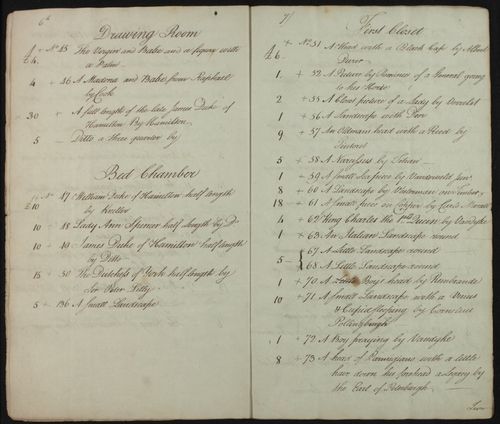 6th
Drawing Room
£4. + No. 45 The Virgin and Babe and a figure with
a Palm
4 + 46 A Madona and Babe from Raphael
by Cook
30 + A full length of the late James Duke of
Hamilton By Hamilton
5 - Ditto a three quarter by
Bed Chamber
£10 + No. 47 William Duke of Hamilton half length
by Kneller
10 + 48 Lady Ann Spencer half length by Do
10 + 49 James Duke of Hamilton half length
by Ditto
15 + 50 The Dutchess of York half length by
Sir Peter Lilly
5 + 136 A Small Landscape
7
First Closet
£6 + No. 51 A Head with a Black Cap by Albert
Durer
1 + 52 A Picture by Simonee of a General going
to his Horse
2 + 55 A Closet picture of a Lady by Verelst
1 + 56 A Landscape with Pen
9 + 57 An Oldman head with a Reed by
Tintoret
5 + 58 A Narcissus by Titian
1 + 59 A Small Sea piece by Vandeveld Junr
8 + 60 A Landscape by Olderman on Timber
18 + 61 A Small piece on Copper by Carlo Maratti
4 + 62 King Charles the 1st Queen by Vandyke
1 + 63 An Italian Landscape round
67 A Little Landscape round
5 -
68 A Little Landscape round
1 + 70 A Boys head by Rembrande
10 + 71 A Small Landscape with a Venus
& Cupid sleeping by Cornelius
Pollenburgh
1 + 72 A Boy praying by Vandyke
8 + 73 A head of Parmigians with a little
hair down his forehead a Legacy by
the Earl of Peterburgh